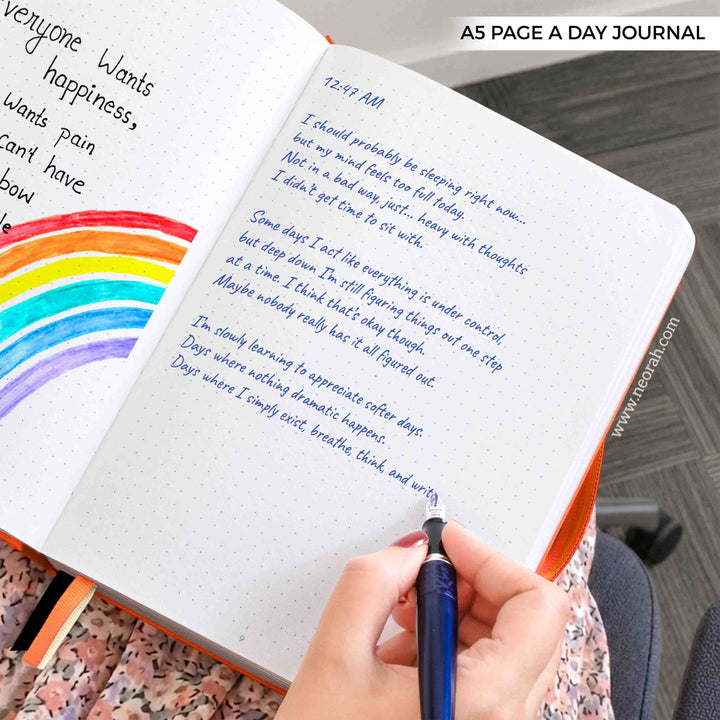 A5 PAGE A DAY JOURNAL
everyone wants
happiness,
wants pain
can't have
12:47 AM
I should probably be sleeping right now...
but my mind feels too full today.
Not in a bad way, just... heavy with thoughts
I didn't get time to sit with.
Some days I act like everything is under control,
but deep down I'm still figuring things out one step
at a time. I think that's okay though.
Maybe nobody really has it all figured out.
I'm slowly learning to appreciate softer days.
Days where nothing dramatic happens.
Days where I simply exist, breathe, think, and write
www.neorah.com